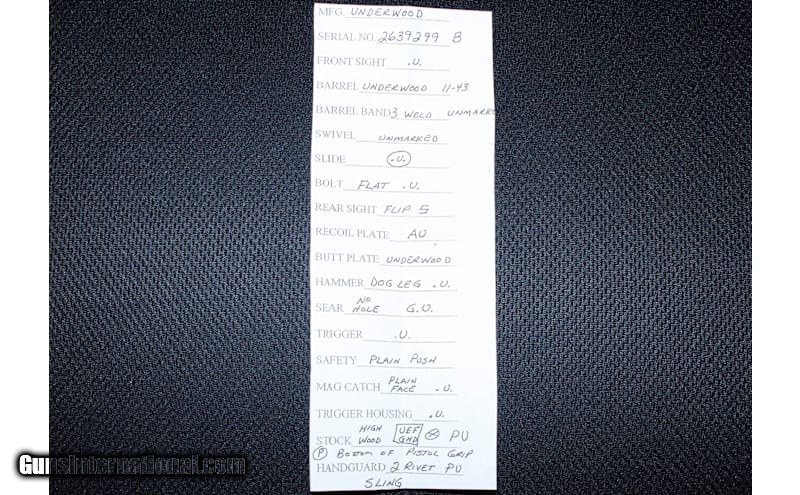 MFG. UNDERWOOD
SERIAL NO. 2639299 B
FRONT SIGHT .U.
BARREL UNDERWOOD 11-43
BARREL BAND 3 WELD UNMARKE
SWIVEL UNMARKED
SLIDE .U.
BOLT FLAT .U.
REAR SIGHT FLIP S
RECOIL PLATE AU
BUTT PLATE UNDERWOOD
HAMMER DOG LEG .U.
SEAR NO HOLE G.U.
TRIGGER .U.
SAFETY PLAIN PUSH
MAG CATCH PLAIN FACE .U.
TRIGGER HOUSING .U.
STOCK HIGH WOOD UEF GHD PU
P BOTTOM OF PISTOL GRIP
HANDGUARD 2 RIVET PU
SLING
GunsInternational.com